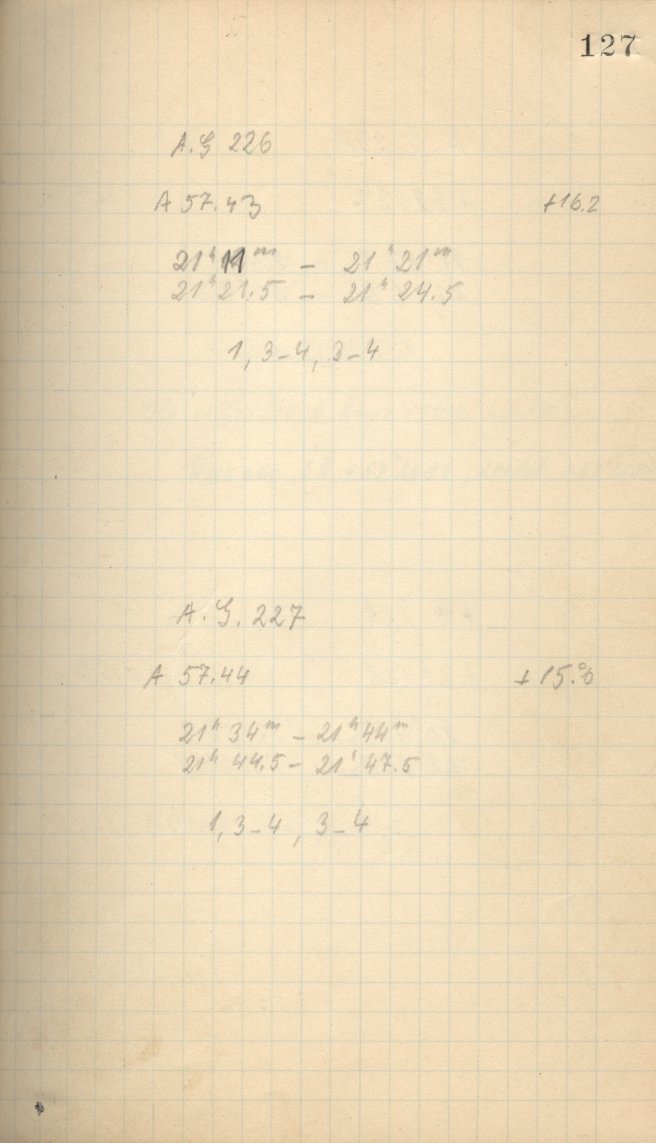 127
A.G 226
A 57.43 +16.2
21ʰ 11ᵐ – 21ʰ 21ᵐ
21ʰ 21.5 – 21ʰ 24.5
1, 3–4, 3–4
A.G. 227
A 57.44
21ʰ 34ᵐ – 21ʰ 44ᵐ
21ʰ 44.5 – 21ʰ 47.5
1, 3–4, 3–4